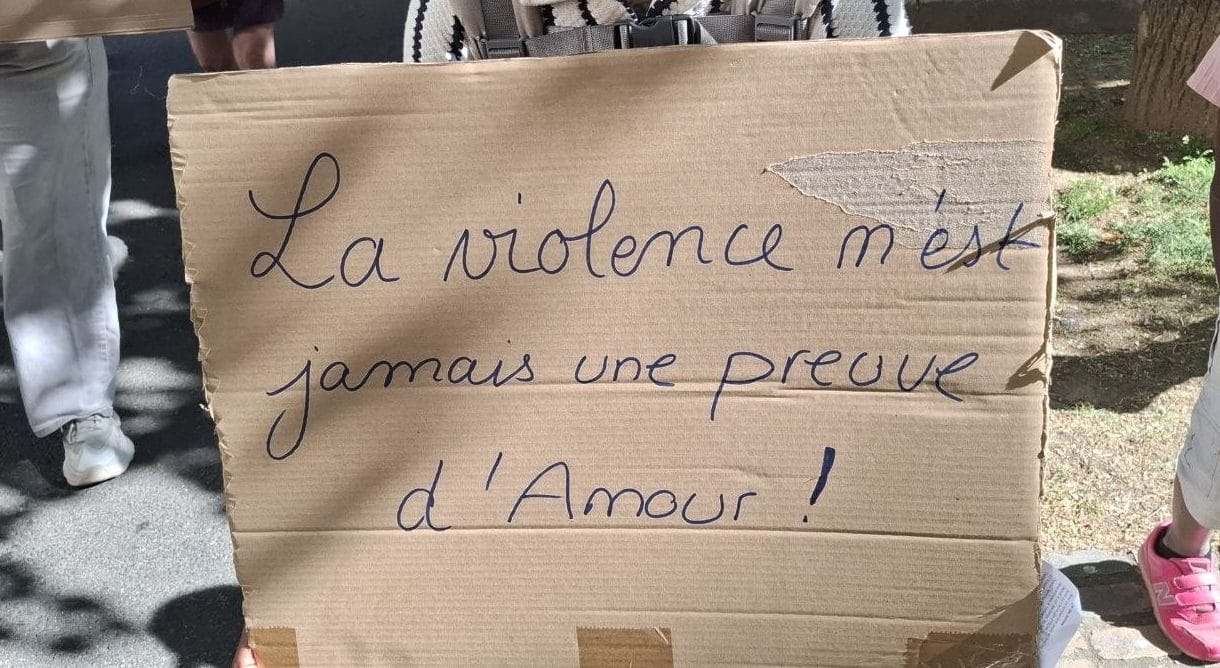 La violence n'est
jamais une preuve
d'Amour !
N